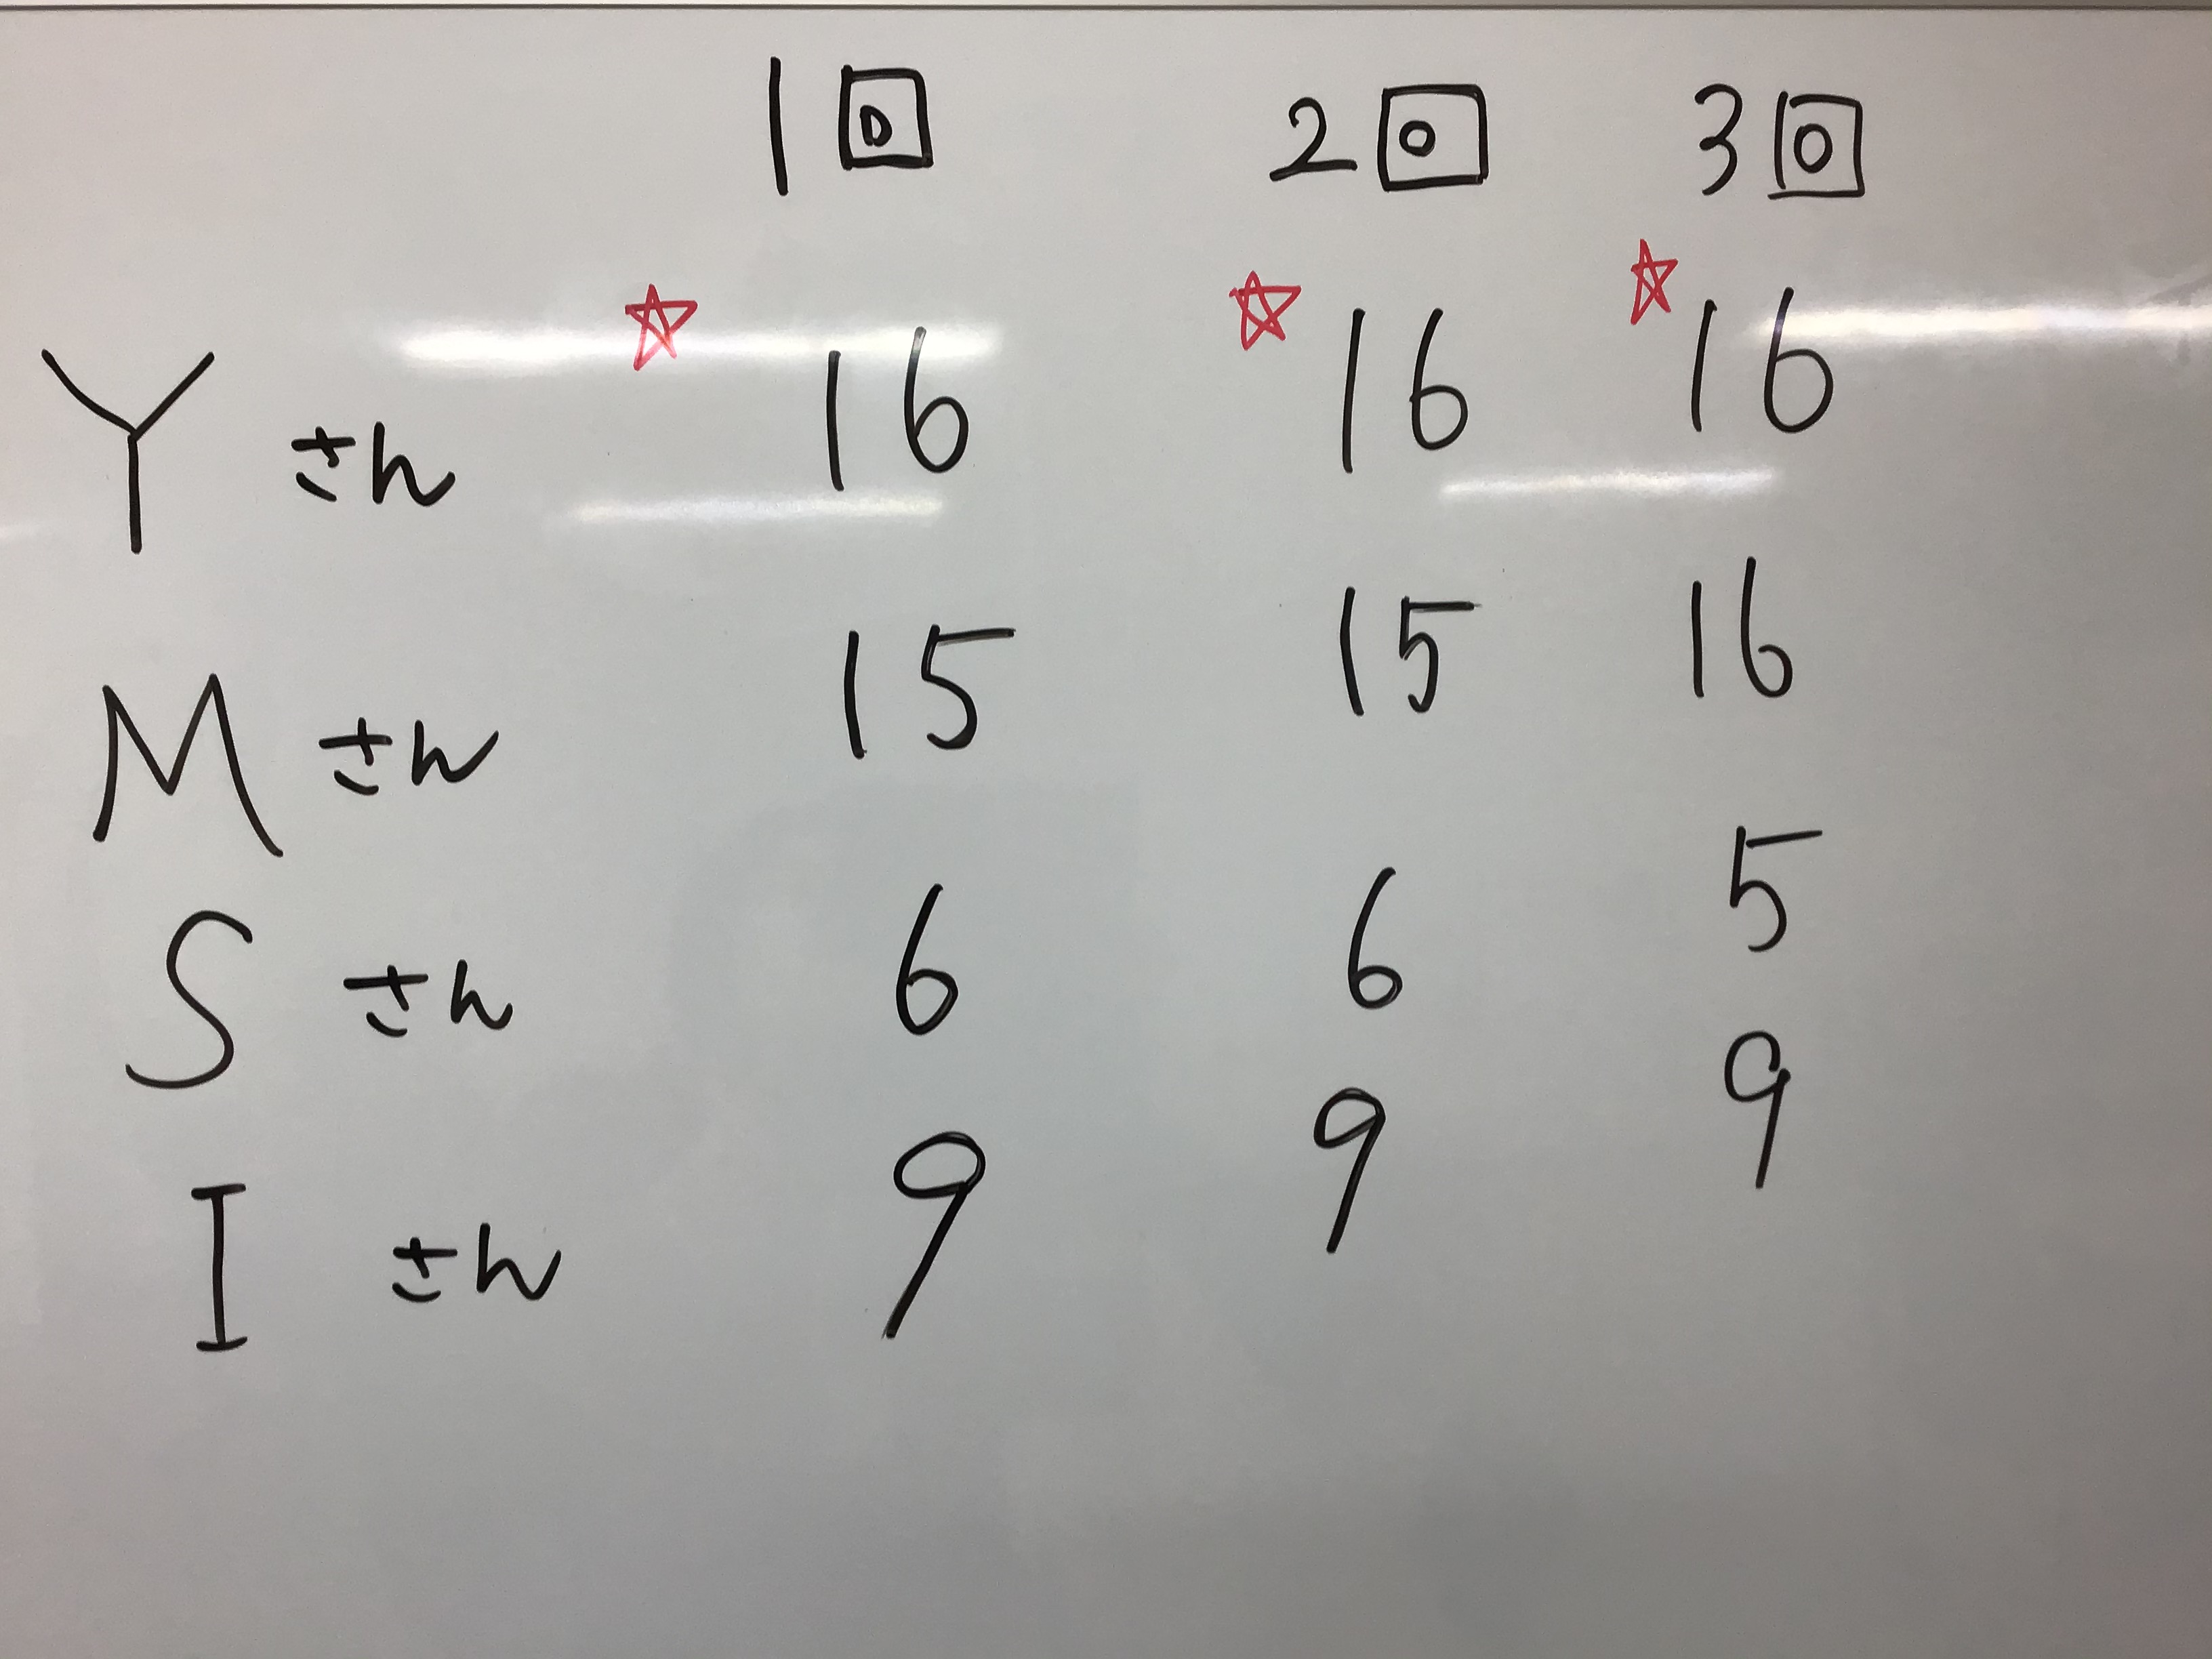 1回 2回 3回
Yさん ☆16 ☆16 ☆16
Mさん 15 15 16
Sさん 6 6 5
Iさん 9 9 9